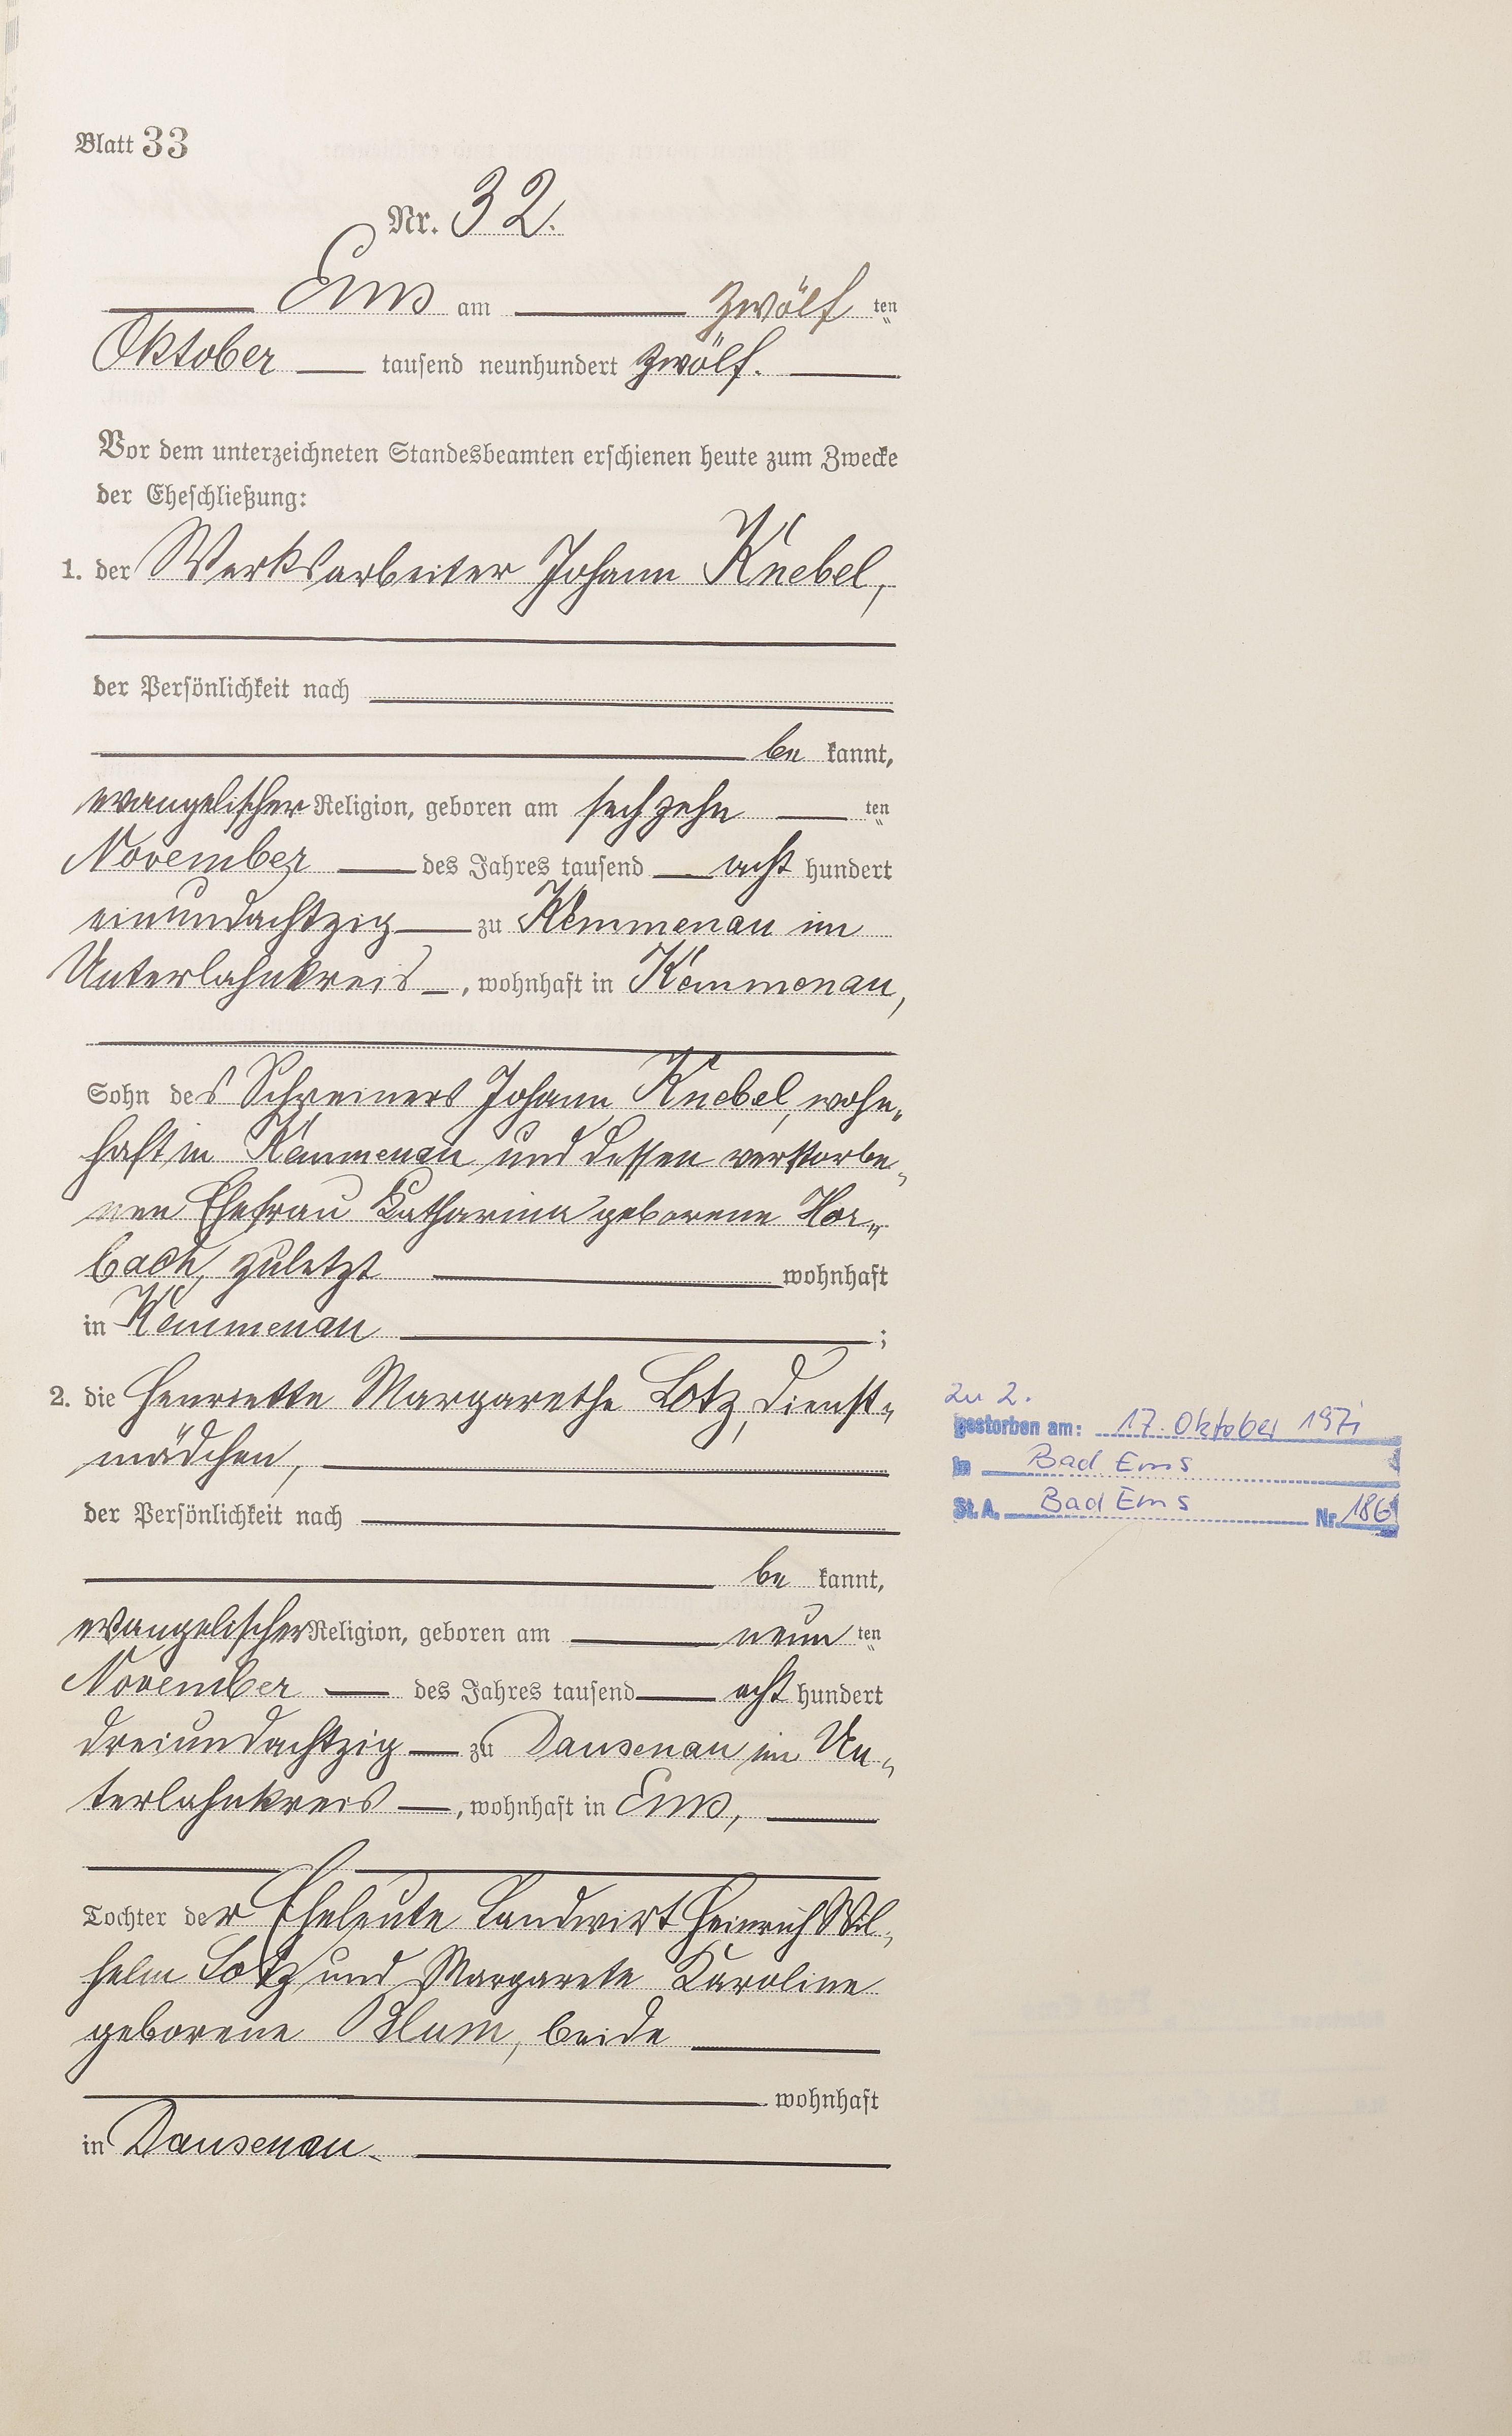 Blatt 33
Nr. 32.
Ems am zwölften
Oktober tausend neunhundert zwölf.
Vor dem unterzeichneten Standesbeamten erschienen heute zum Zwecke
der Eheschließung:
1. der Werksarbeiter Johann Knebel,
der Persönlichkeit nach
bekannt,
evangelischer Religion, geboren am sechzehnten
November des Jahres tausend acht hundert
einundachtzig zu Kemmenau im
Unterlahnkreis, wohnhaft in Kemmenau,
Sohn des Schreiners Johann Knebel, wohn„
haft in Kemmenau und dessen verstorbe„
nen Ehefrau Katharina geborene Hor„
bach, zuletzt wohnhaft
in Kemmenau;
2. die Henriette Margarethe Lotz, Dienst„
mädchen,
der Persönlichkeit nach
bekannt,
evangelischer Religion, geboren am neunten
November des Jahres tausend acht hundert
dreiundachtzig zu Dausenau im Un„
terlahnkreis, wohnhaft in Ems,
Tochter der Eheleute Landwirt Heinrich Wil„
helm Lotz und Margarete Karoline
geborene Blum, beide
wohnhaft
in Dausenau.
Zu 2.
gestorben am: 17. Oktober 1971
in Bad Ems
St. A. Bad Ems Nr.